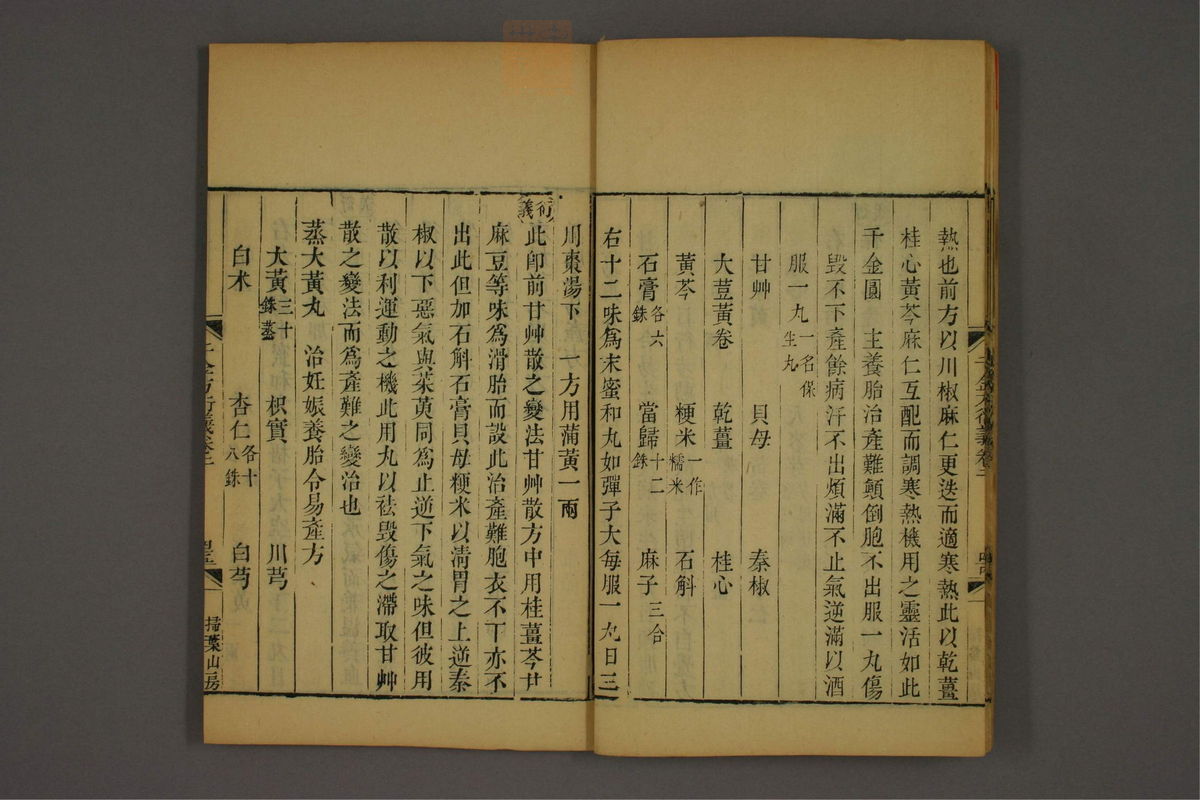 熱也前方以川椒麻仁更迭而適寒熱此以乾薑
桂心黃芩麻仁互配而調寒熱機用之靈活如此
千金圓 主養胎治產難顛倒胞不出服一丸傷
毀不下產餘病汗不出煩滿不止氣逆滿以酒
服一丸 一名保生丸
甘艸 貝母 秦椒
大荳黃卷 乾薑 桂心
黃芩 粳米 一作糯米 石斛
石膏 各六銖 當歸 十二銖 麻子 三合
右十二味爲末蜜和丸如彈子大每服一丸日三
用棗湯下 一方用蒲黃一兩
衍義
此卽前甘艸散之變法甘艸散方中用桂薑芩
麻豆等味爲滑胎而設此治產難胞衣不下亦不
出此但加石斛石膏貝母粳米以淸胃之上逆秦
椒以下惡氣與茱萸同爲止逆下氣之味但彼用
散以利運動之機此用丸以祛毀傷之滯取甘艸
散之變法而爲產難之變治也
蒸大黃丸 治妊娠養胎令易產方
大黃 三十銖蒸 枳實 川芎
白朮 杏仁 各十八銖 白芍
千金方衍義卷二
掃葉山房